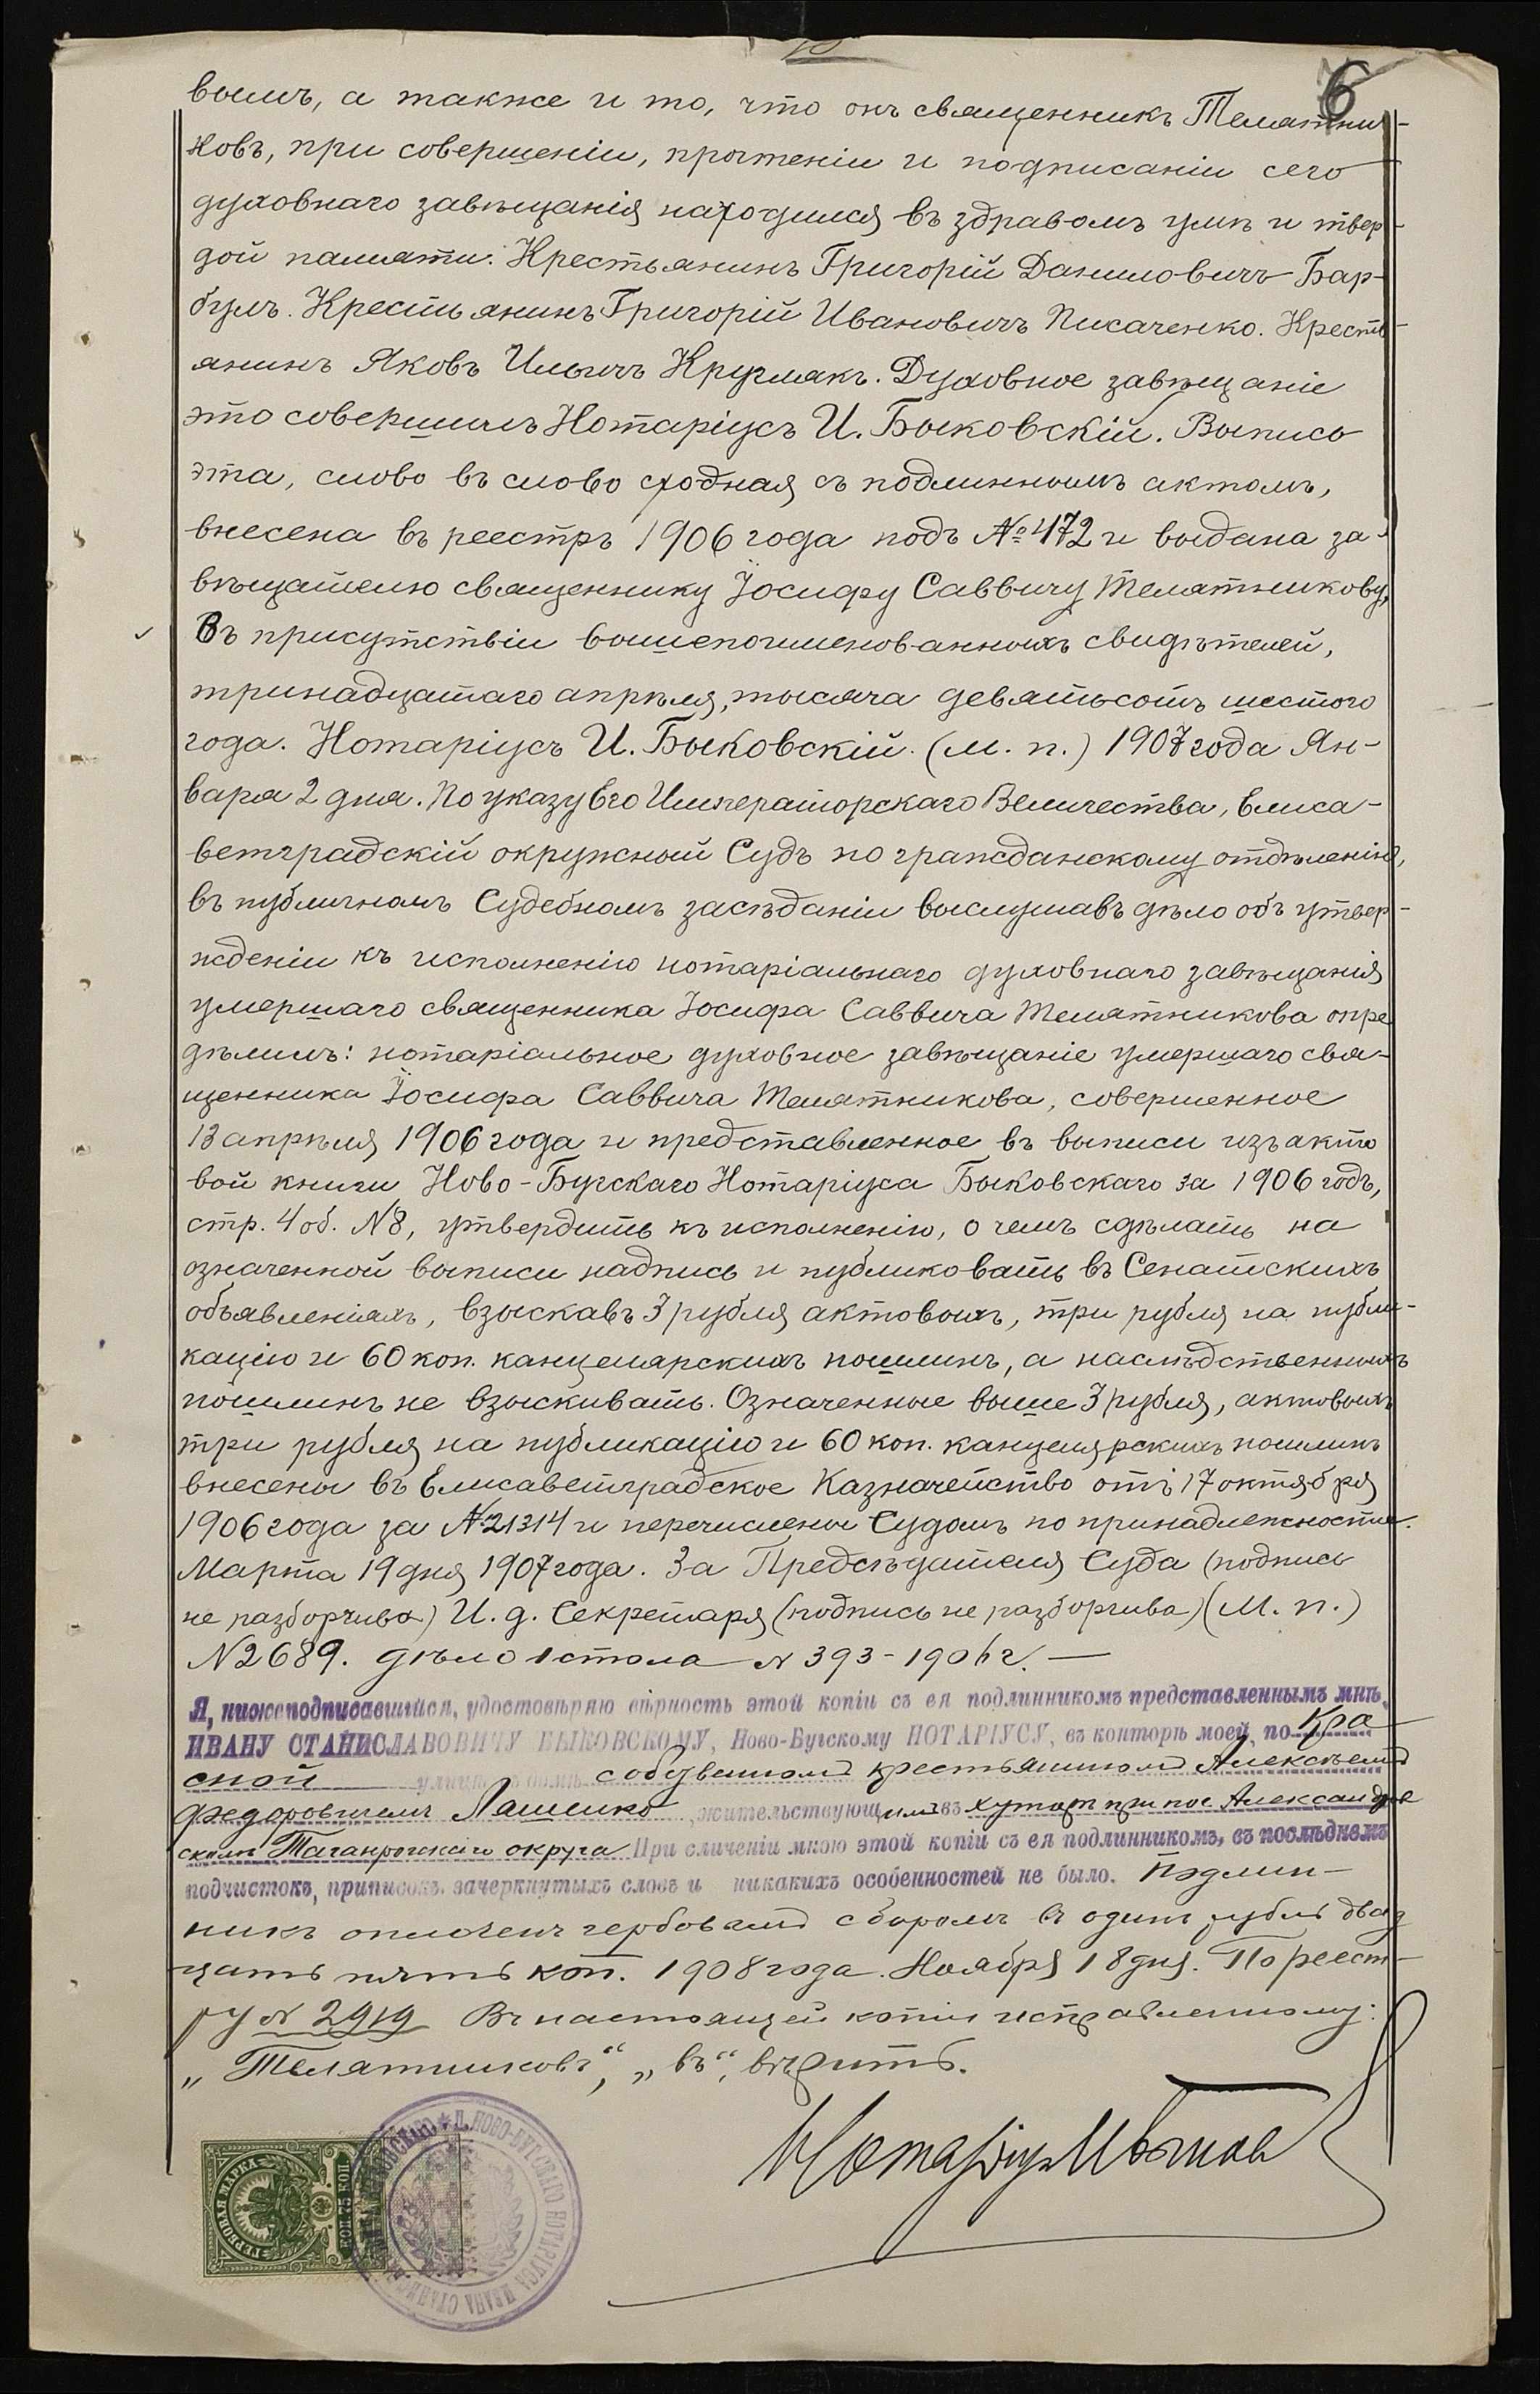 6
вымъ, а также и то, что онъ священникъ Телятни-
ковъ, при совершеніи, прочтеніи и подписаніи сего
духовнаго завѣщанія находился въ здравомъ умѣ и твер-
дой памяти. Крестьянинъ Григорій Даниловичъ Бар-
булъ. Крестьянинъ Григорій Ивановичъ Писаченко. Кресть-
янинъ Яковъ Ильичъ Кругляк. Духовное завѣщаніе
это совершилъ Нотаріусъ И. Быковскій. Выпись
эта, слово въ слово сходная съ подлиннымъ актомъ,
внесена въ реестръ 1906 года подъ № 472 и выдана за-
вѣщателю священнику Іосифу Саввичу Телятникову,
Въ присутствіи вышепоименованныхъ свидѣтелей,
тринадцатаго апрѣля, тысяча девятьсотъ шестого
года. Нотаріусъ И. Быковскій. (М. п.) 1907 года Ян-
варя 2 дня. По указу Его Императорскаго Величества, Елиса-
ветградскій окружный Судъ по гражданскому отдѣленію,
въ публичномъ Судебномъ засѣданіи выслушавъ дѣло объ утвер-
жденіи къ исполненію нотаріальнаго духовнаго завѣщанія
умершаго священника Іосифа Саввича Телятникова опре
дѣлилъ: нотаріальное духовное завѣщаніе умершаго свя-
щенника Іосифа Саввича Телятникова, совершенное
13 апрѣля 1906 года и представленное въ выписи изъ акто
вой книги Ново-Бугскаго Нотаріуса Быковскаго за 1906 годъ,
стр. 4 об. N 8, утвердить къ исполненію, о чемъ сдѣлать на
означенной выписи надпись и публиковать въ Сенатскихъ
объявленіяхъ, взыскавъ 3 рубля актовыхъ, три рубля на публи-
кацію и 60 коп. канцелярскихъ пошлинъ, а наслѣдственныхъ
пошлинъ не взыскивать. Означенные выше 3 рубля, актовыхъ
три рубля на публикацію и 60 коп. канцелярскихъ пошлинъ
внесены въ Елисаветградское Казначейство отъ 17 октября
1906 года за № 21314 и перечислены Судомъ по принадлежности.
Марта 19 дня 1907 года. За Предсѣдателя Суда (подпись
не разборчива) И. д. Секретаря (подпись не разборчива) (М. п.)
N 2689. дѣло 1 стола N 393-1906 г. —
Я, нижеподписавшійся, удостовѣряю вѣрность этой копіи съ ея подлинникомъ представленнымъ мнѣ,
ИВАНУ СТАНИСЛАВОВИЧУ БЫКОВСКОМУ, Ново-Бугскому НОТАРІУСУ, въ конторѣ моей, по Кра
сной улицѣ домѣ собственномъ крестьяниномъ Алексѣемъ
Федоровичемъ Ляшенко, жительствующимъ въ хуторѣ при пос. Александров
скомъ Таганрогскаго округа При сличеніи мною этой копіи съ ея подлинникомъ, въ послѣднемъ
подчистокъ, приписокъ, зачеркнутыхъ словъ и никакихъ особенностей не было. Подлин-
никъ оплоченъ гербовымъ сборомъ въ одинъ рубль двад
цать пять коп. 1908 года. Ноября 18 дня. По реест-
ру N 2919 Въ настоящей копіи исправленному:
„Телятниковъ“, „въ“, вѣрить.
Нотаріусъ И Быков
ГЕРБОВАЯ МАРКА
75 КОП
НОВО-БУГСКАГО НОТАРІУСА ИВАНА